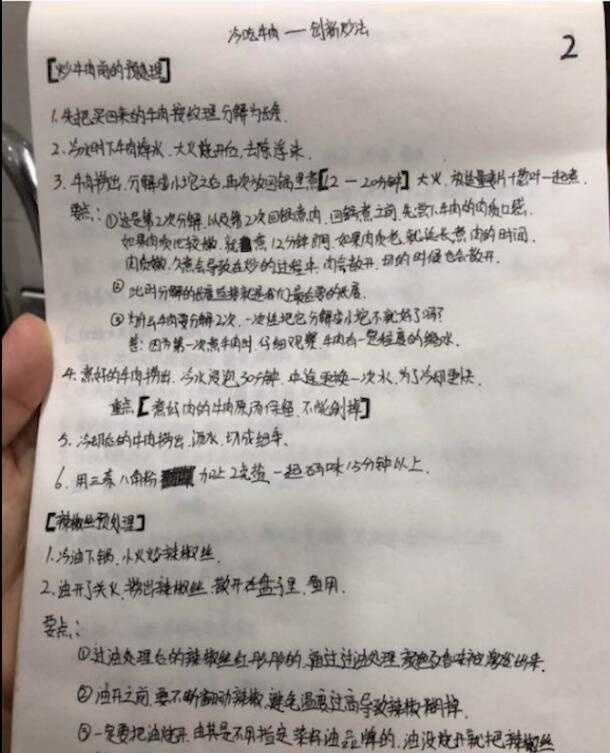 冷吃牛肉——创新炒法
2
【炒牛肉前的预处理】
1.先把买回来的牛肉按纹理分解为长条.
2.冷水时下牛肉焯水.大火烧开后,去除浮沫.
3.牛肉捞出.分解成小坨之后.再次放回锅里煮【12—20分钟】大火.放适量姜片+葱叶一起煮.
要点:①这是第2次分解.以及第2次回锅煮肉.回锅煮之前.先尝下牛肉的肉质口感.
如果肉质比较嫩.就煮12分钟即可.如果肉质老.就延长煮肉的时间.
肉质嫩.久煮会导致在炒的过程中.肉会散开.切的时候也会散开.
②此时分解的长度应该就是我们最后要的长度.
③为什么牛肉要分解2次.一次性把它分解成小坨不就好了吗?
答:因为第一次煮牛肉时.仔细观察.牛肉有一定程度的缩水.
4.煮好的牛肉捞出.冷水浸泡30分钟.中途更换一次水.为了冷却更快.
重点【煮好肉的牛肉原汤保留.不能倒掉】
5.冷却后的牛肉捞出.沥水.切成细条.
6.用三奈八角粉 加上2克盐一起码味15分钟以上.
【辣椒丝预处理】
1.冷油下锅.小火炒辣椒丝.
2.油开了关火.捞出辣椒丝.散开在盘子里.备用.
要点:
①过油处理后的辣椒丝红彤彤的.通过过油处理.颜色及香味被激发出来.
②油开之前.要不断翻动辣椒.避免温度过高导致辣椒糊掉.
③一定要把油烧开.尤其是不用指定菜籽油品牌的.油没烧开就把辣椒丝